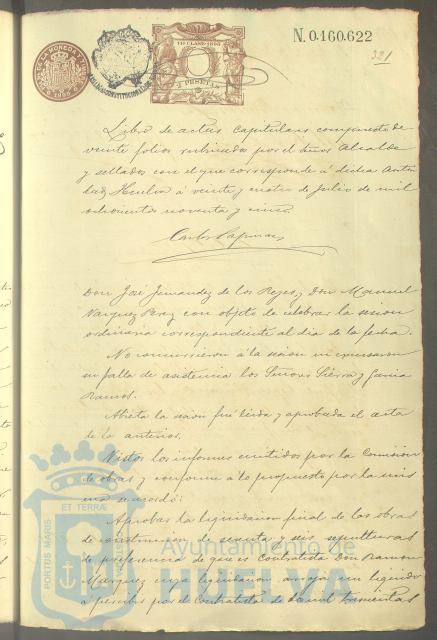 N. 0.160.622
321
11ª CLASE 1895
2 PESETAS
Libro de actas capitulares compuesto de
veinte folios rubricados por el Señor Alcalde
y sellados con el que corresponde á dicha Autori
dad, Huelva á veinte y cuatro de Julio de mil
ochocientos noventa y cinco.
Don José Fernandez de los Reyes, y Don Manuel
Vazquez Perez con objeto de celebrar la sesion
ordinaria correspondiente al dia de la fecha.
No concurrieron á la sesion ni excusaron
su falta de asistencia los Señores Sierra y Garcia
Ramos.
Abierta la sesion fué leida y aprobada el acta
de la anterior.
Vistos los informes emitidos por la Comision
de obras y conforme á lo propuesto por la mis
ma se acordó:
Aprobar la liquidacion final de las obras
de construccion de sesenta y seis sepulturas
de preferencia de que es Contratista Don Ramon
Marquez cuya liquidacion arroja un liquido
á percibir por el Contratista de dos mil
PORTUS MARIS
ET TERRÆ
Ayuntamiento de
HUELVA